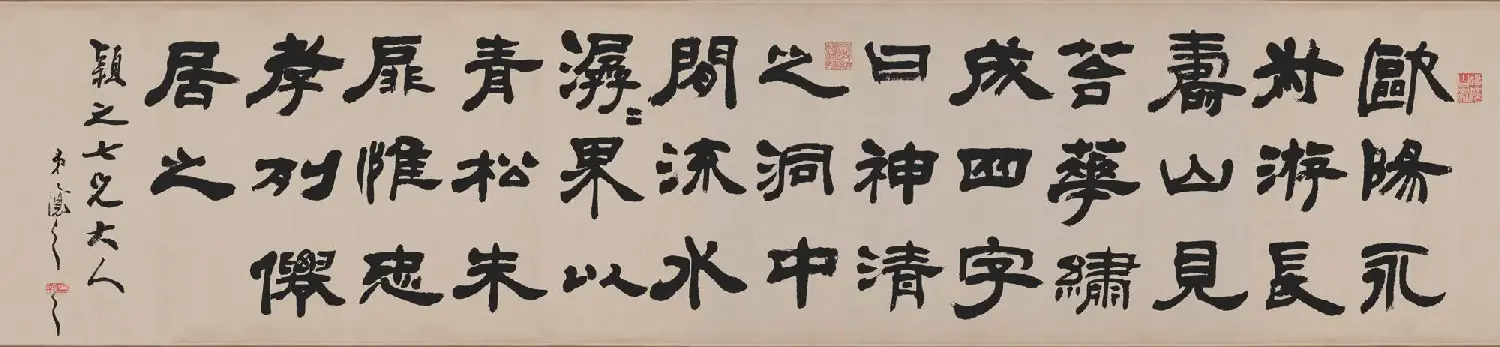 歐陽永
叔游長
壽山見
苔華繡
成四字
曰神清
之洞中
間流水
潺〻果以
青松朱
扉惟忠
孝列僊
居之
穎之七兄大人
弟隱